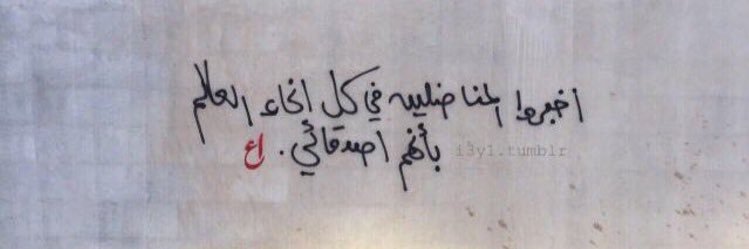 اخبروا المناضلين في كل انحاء العالم
بأنهم اصدقائي . اع
i3y1.tumblr